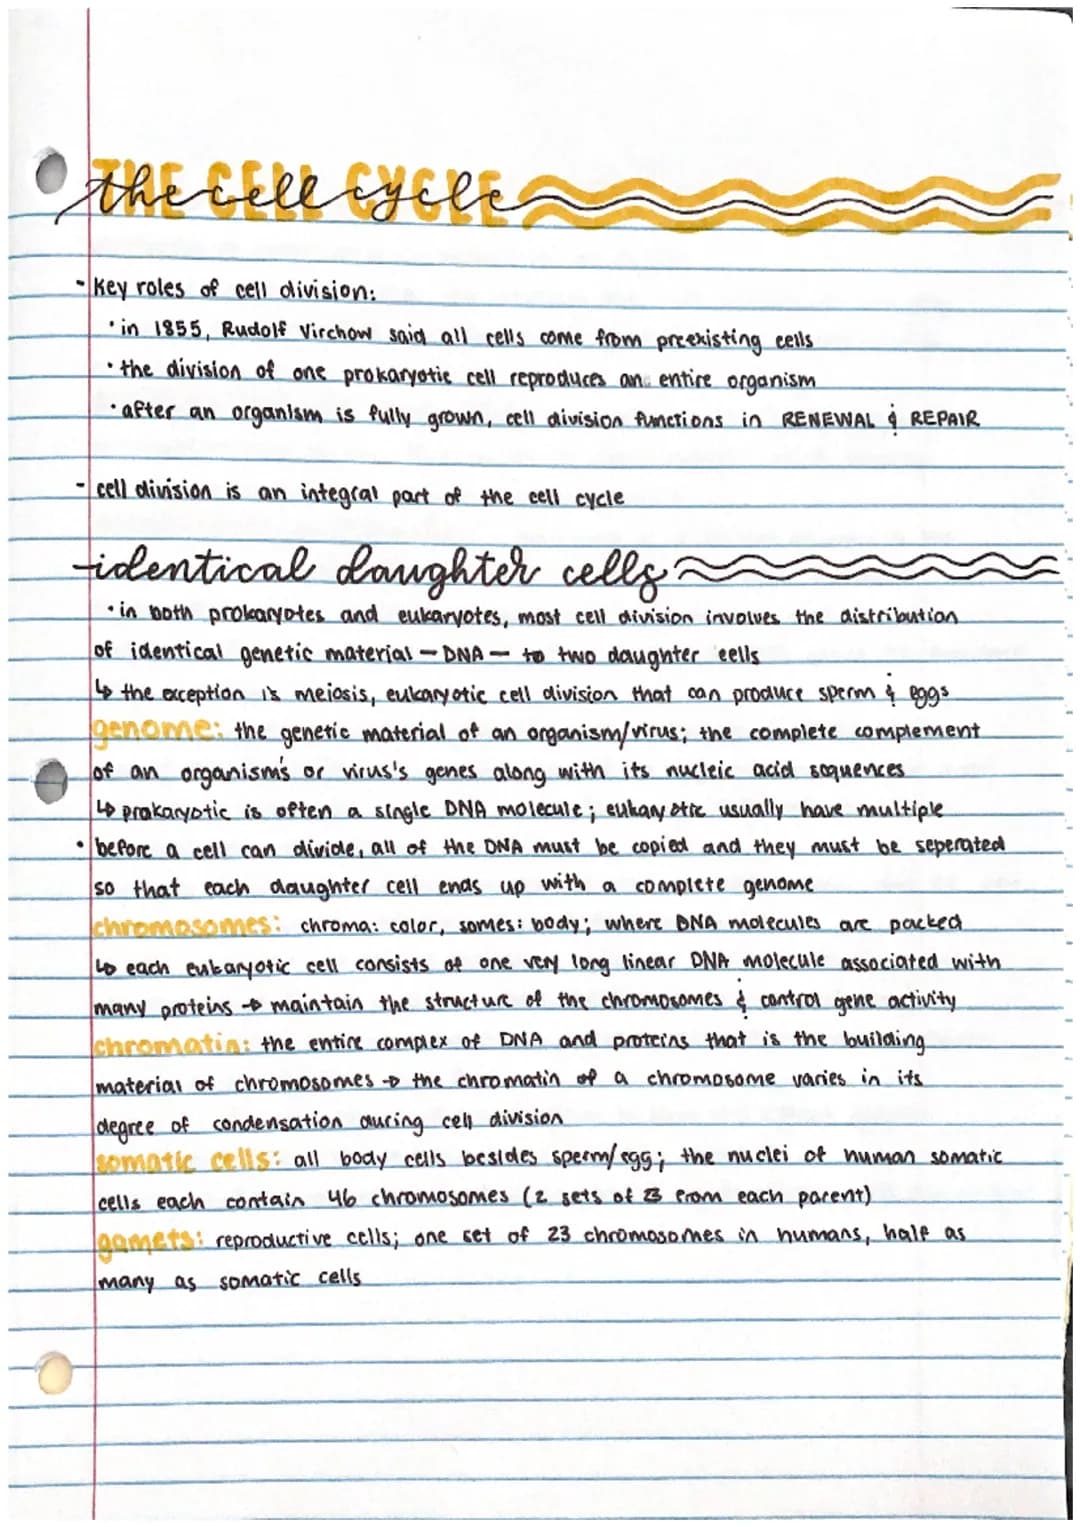 THE CELL CYCLE
the cell cycle
- Key roles of cell division:
• in 1855, Rudolf Virchow said all cells come from preexisting cells
• the division of one prokaryotic cell reproduces an entire organism
• after an organism is fully grown, cell division functions in RENEWAL & REPAIR
- cell division is an integral part of the cell cycle
- identical daughter cells
• in both prokaryotes and eukaryotes, most cell division involves the distribution
of identical genetic material — DNA — to two daughter cells
↳ the exception is meiosis, eukaryotic cell division that can produce sperm & eggs
genome: the genetic material of an organism/virus; the complete complement
of an organism's or virus's genes along with its nucleic acid sequences
↳ prokaryotic is often a single DNA molecule; eukaryotic usually have multiple
• before a cell can divide, all of the DNA must be copied and they must be seperated
so that each daughter cell ends up with a complete genome
chromosomes: chroma: color, somes: body; where DNA molecules are packed
↳ each eukaryotic cell consists of one very long linear DNA molecule associated with
many proteins → maintain the structure of the chromosomes & control gene activity
chromatin: the entire complex of DNA and proteins that is the building
material of chromosomes → the chromatin of a chromosome varies in its
degree of condensation during cell division
somatic cells: all body cells besides sperm/egg; the nuclei of human somatic
cells each contain 46 chromosomes (2 sets of 23 from each parent)
gamets: reproductive cells; one set of 23 chromosomes in humans, half as
many as somatic cells